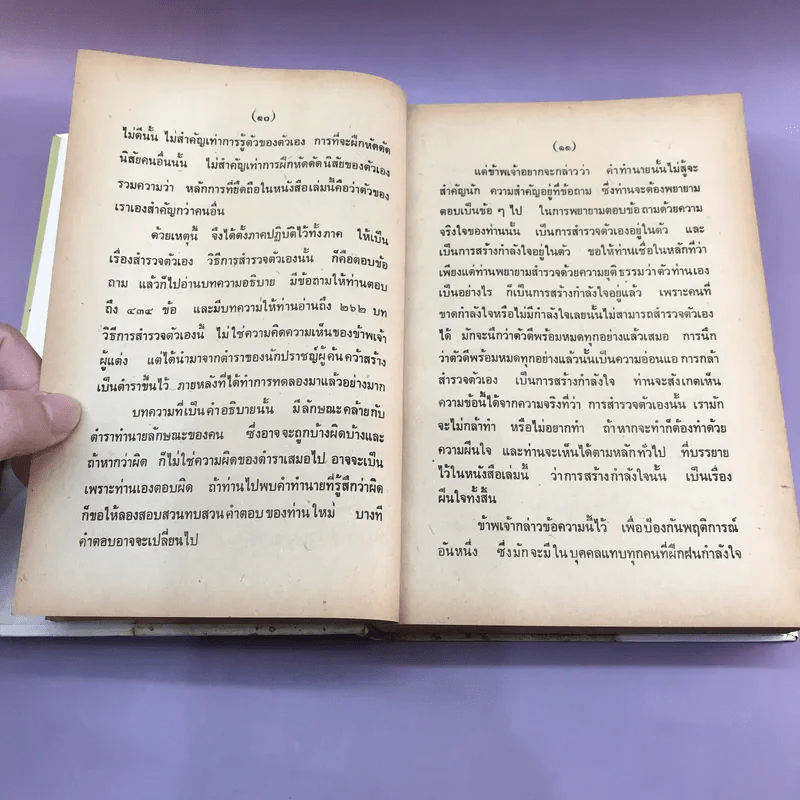 (๑๐)
ไม่ดีนั้น ไม่สำคัญเท่าการรู้ตัวของตัวเอง การที่จะฝึกหัดดัด
นิสัยคนอื่นนั้น ไม่สำคัญเท่าการฝึกหัดดัดนิสัยของตัวเอง
รวมความว่า หลักการที่ยึดถือในหนังสือเล่มนี้คือว่าตัวของ
เราเองสำคัญกว่าคนอื่น
ด้วยเหตุนี้ จึงได้ตั้งภาคปฏิบัติไว้ทั้งภาค ให้เป็น
เรื่องสำรวจตัวเอง วิธีการสำรวจตัวเองนั้น ก็คือตอบข้อ
ถาม แล้วก็ไปอ่านบทความอธิบาย มีข้อถามให้ท่านตอบ
ถึง ๔๓๔ ข้อ และมีบทความให้ท่านอ่านถึง ๒๖๒ บท
วิธีการสำรวจตัวเองนี้ ไม่ใช่ความคิดความเห็นของข้าพเจ้า
ผู้แต่ง แต่ได้นำมาจากตำราของนักปราชญ์ผู้ค้นคว้าสร้าง
เป็นตำราขึ้นไว้ ภายหลังที่ได้ทำการทดลองมาแล้วอย่างมาก
บทความที่เป็นคำอธิบายนั้น มีลักษณะคล้ายกับ
ตำราทำนายลักษณะของคน ซึ่งอาจจะถูกบ้างผิดบ้างและ
ถ้าหากว่าผิด ก็ไม่ใช่ความผิดของตำราเสมอไป อาจจะเป็น
เพราะท่านเองตอบผิด ถ้าท่านไปพบคำทำนายที่รู้สึกว่าผิด
ก็ขอให้ลองสอบสวนทบสวนคำตอบของท่านใหม่ บางที
คำตอบอาจจะเปลี่ยนไป
(๑๑)
แต่ข้าพเจ้าอยากจะกล่าวว่า คำทำนายนั้นไม่สู้จะ
สำคัญนัก ความสำคัญอยู่ที่ข้อถาม ซึ่งท่านจะต้องพยายาม
ตอบเป็นข้อ ๆ ไป ในการพยายามตอบข้อถามด้วยความ
จริงใจของท่านนั้น เป็นการสำรวจตัวเองอยู่ในตัว และ
เป็นการสร้างกำลังใจอยู่ในตัว ขอให้ท่านเชื่อในหลักที่ว่า
เพียงแต่ท่านพยายามสำรวจด้วยความยุติธรรมว่าตัวท่านเอง
เป็นอย่างไร ก็เป็นการสร้างกำลังใจอยู่แล้ว เพราะคนที่
ขาดกำลังใจหรือไม่มีกำลังใจเลยนั้นไม่สามารถสำรวจตัวเอง
ได้ มักจะนึกว่าตัวดีพร้อมหมดทุกอย่างแล้วเสมอ การนึก
ว่าตัวดีพร้อมหมดทุกอย่างแล้วนั้นเป็นความอ่อนแอ การกล้า
สำรวจตัวเอง เป็นการสร้างกำลังใจ ท่านจะสังเกตเห็น
ความข้อนี้ได้จากความจริงที่ว่า การสำรวจตัวเองนั้น เรามัก
จะไม่กล้าทำ หรือไม่อยากทำ ถ้าหากจะทำก็ต้องทำด้วย
ความฝืนใจ และท่านจะเห็นได้ตามหลักทั่วไป ที่บรรยาย
ไว้ในหนังสือเล่มนี้ ว่าการสร้างกำลังใจนั้น เป็นเรื่อง
ฝืนใจทั้งสิ้น
ข้าพเจ้ากล่าวข้อความนี้ไว้ เพื่อป้องกันพฤติการณ์
อันหนึ่ง ซึ่งมักจะมีในบุคคลแทบทุกคนที่ฝึกฝนกำลังใจ